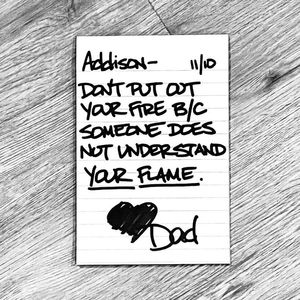 Addison- 11/10
DON'T PUT OUT
YOUR FIRE B/C
SOMEONE DOES
NOT UNDERSTAND
YOUR FLAME.
Dad